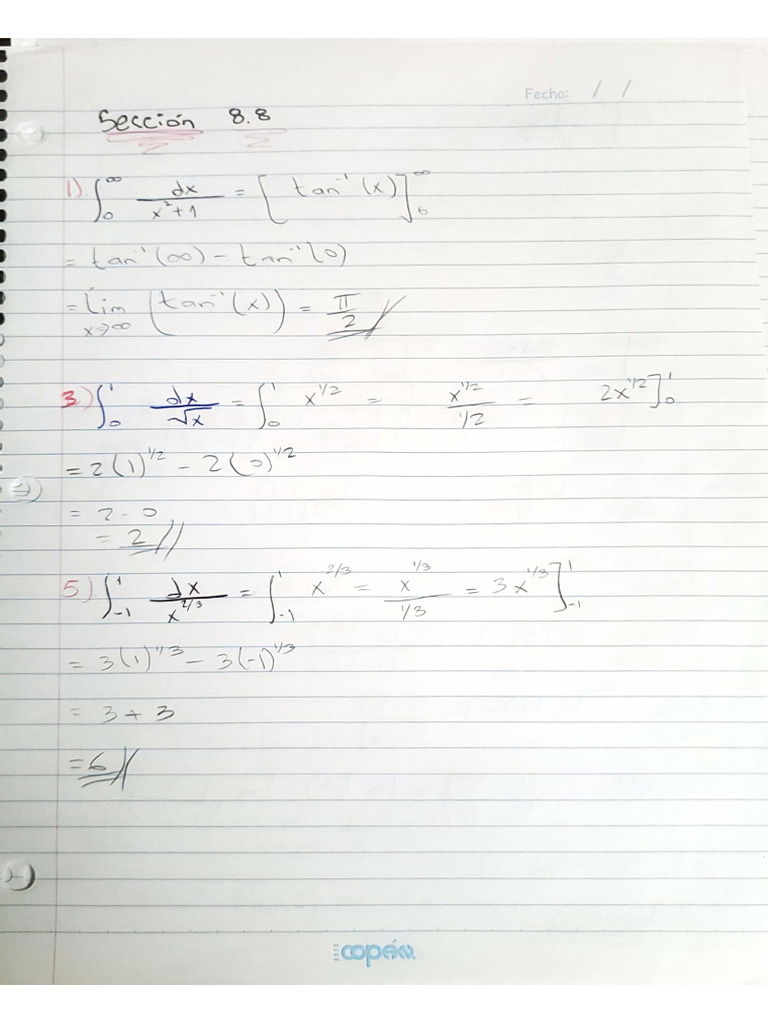 Fecha: / /
Sección 8.8
1) ∫₀^∞ dx/(x²+1) = [tan⁻¹(x)]₀^∞
= tan⁻¹(∞) - tan⁻¹(0)
= lim x→∞ (tan⁻¹(x)) = π/2 //
3) ∫₀¹ dx/√x = ∫₀¹ x^1/2 = x^1/2 / 1/2 = 2x^1/2]₀¹
= 2(1)^1/2 - 2(0)^1/2
= 2 - 0
= 2 //
5) ∫₋₁¹ dx/x^2/3 = ∫₋₁¹ x^2/3 = x^1/3 / 1/3 = 3x^1/3]₋₁¹
= 3(1)^1/3 - 3(-1)^1/3
= 3 + 3
= 6 //
copán